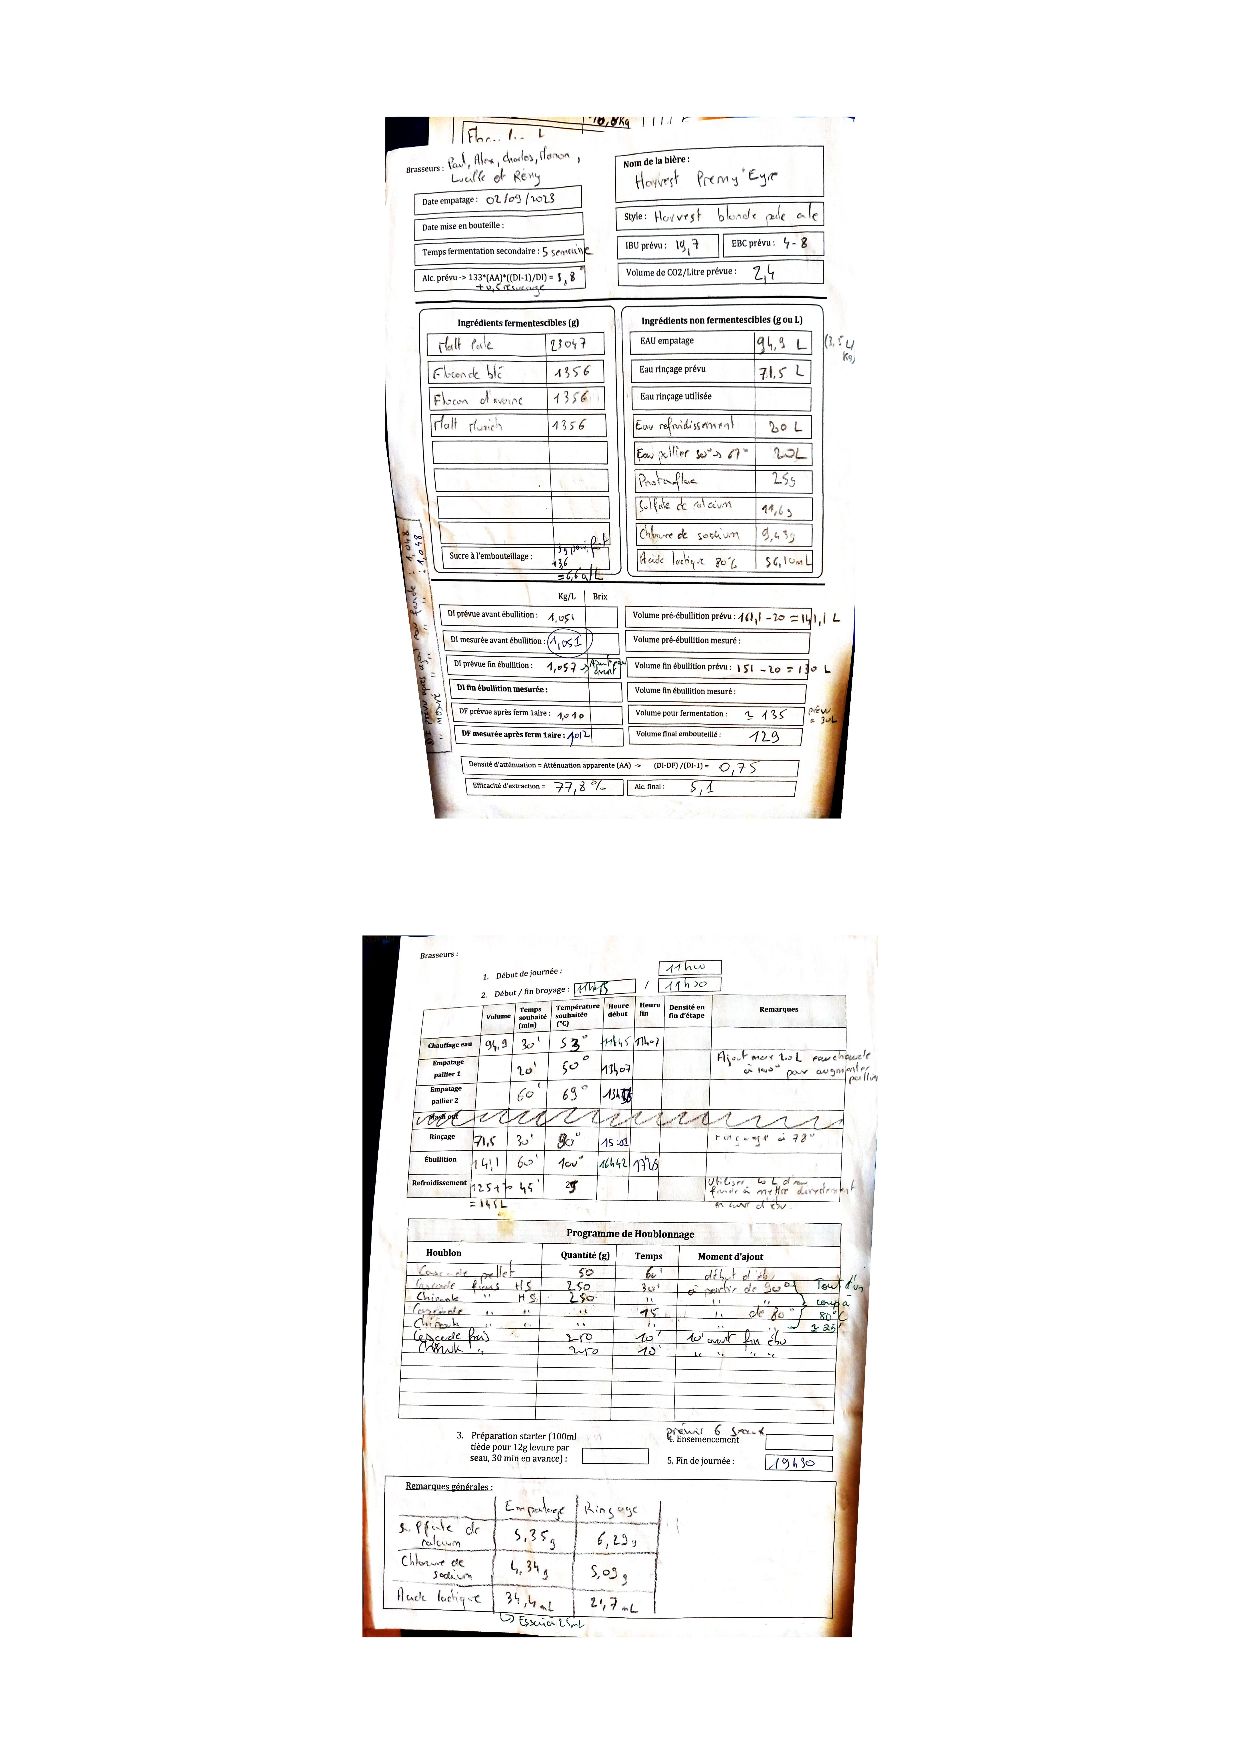 18,8Kg
Brasseurs : Paul, Alex, Charles, Manon,
Lucille et Rémy
Nom de la bière :
Harvest Premy'Eyre
Date empatage : 02/09/2023
Date mise en bouteille :
Style : Harvest blonde pale ale
Temps fermentation secondaire : 5 semaine
IBU prévu : 19,7
EBC prévu : 4-8
Alc. prévu -> 133*(AA)*((DI-1)/DI) = 5,8°
Volume de CO2/Litre prévue : 2,4
Ingrédients fermentescibles (g)
Malt Pale 23047
Flocon de blé 1356
Flocon d'avoine 1356
Malt Munich 1356
Sucre à l'embouteillage :
= 6,6 g/L
Ingrédients non fermentescibles (g ou L)
EAU empatage 94,9 L (3,5 L/
Kg)
Eau rinçage prévu 71,5 L
Eau rinçage utilisée
Eau refroidissement 20 L
Eau pallier 50° -> 67° 20L
Protafloc 25g
Sulfate de calcium 11,6g
Chlorure de sodium 9,43g
Acide lactique 80% 56,10mL
Kg/L Brix
DI prévue avant ébullition : 1,051
DI mesurée avant ébullition : 1,051
DI prévue fin ébullition : 1,057
DI fin ébullition mesurée :
DF prévue après ferm 1aire : 1,010
DF mesurée après ferm 1aire : 1,012
DI prévu après ajout eau froide : 1,048
" mesuré " " " " : 1,048
Volume pré-ébullition prévu : 161,1 - 20 = 141,1 L
Volume pré-ébullition mesuré :
Volume fin ébullition prévu : 151 - 20 = 130 L
Volume fin ébullition mesuré :
Volume pour fermentation : ≈ 135
Volume final embouteillé : 129
Densité d'atténuation = Atténuation apparente (AA) -> (DI-DF)/(DI-1) = 0,75
Efficacité d'extraction = 77,8 %
Alc. final : 5,1
Brasseurs :
1. Début de journée : 11h00
2. Début / fin broyage : 11h15 / 11h30
Volume Temps souhaité (min) Température souhaitée (°C) Heure début Heure fin Densité en fin d'étape Remarques
Chauffage eau 94,9 30' 53° 11h45 13h07
Empatage pallier 1 20' 50° 13h07 Ajout mars 20L eau chaude
à 100° pour augmenter
pallier
Empatage pallier 2 60' 69°
Mash out
Rinçage 71,5 30' 80° 15:02 rinçage à 78°
Ébullition 141,1 60' 100° 16h42 17h26
Refroidissement 125+20 45' 25 Utiliser 20 L d'eau
froide à mettre directement
en cuve d'ébu.
= 145L
Programme de Houblonnage
Houblon Quantité (g) Temps Moment d'ajout
Cascade pellet 50 60' début d'ébu
Cascade frais HS 250 30' à partir de 90° Tout d'un
Chinook " HS 250 " " " coup à
Cascade " " " 15 " de 80° 80°C
Chinook " " " "
Cascade frais 250 10' 10' avant fin ébu
Chinook " 250 10' " " " "
3. Préparation starter (100ml
tiède pour 12g levure par
seau, 30 min en avance) :
prévoir 6 seaux
4. Ensemencement
5. Fin de journée : 19h30
Remarques générales :
Empatage Rinçage
Sulfate de calcium 5,35g 6,29g
Chlorure de sodium 4,34g 5,09g
Acide lactique 34,4mL 21,7mL
Essayer 25mL